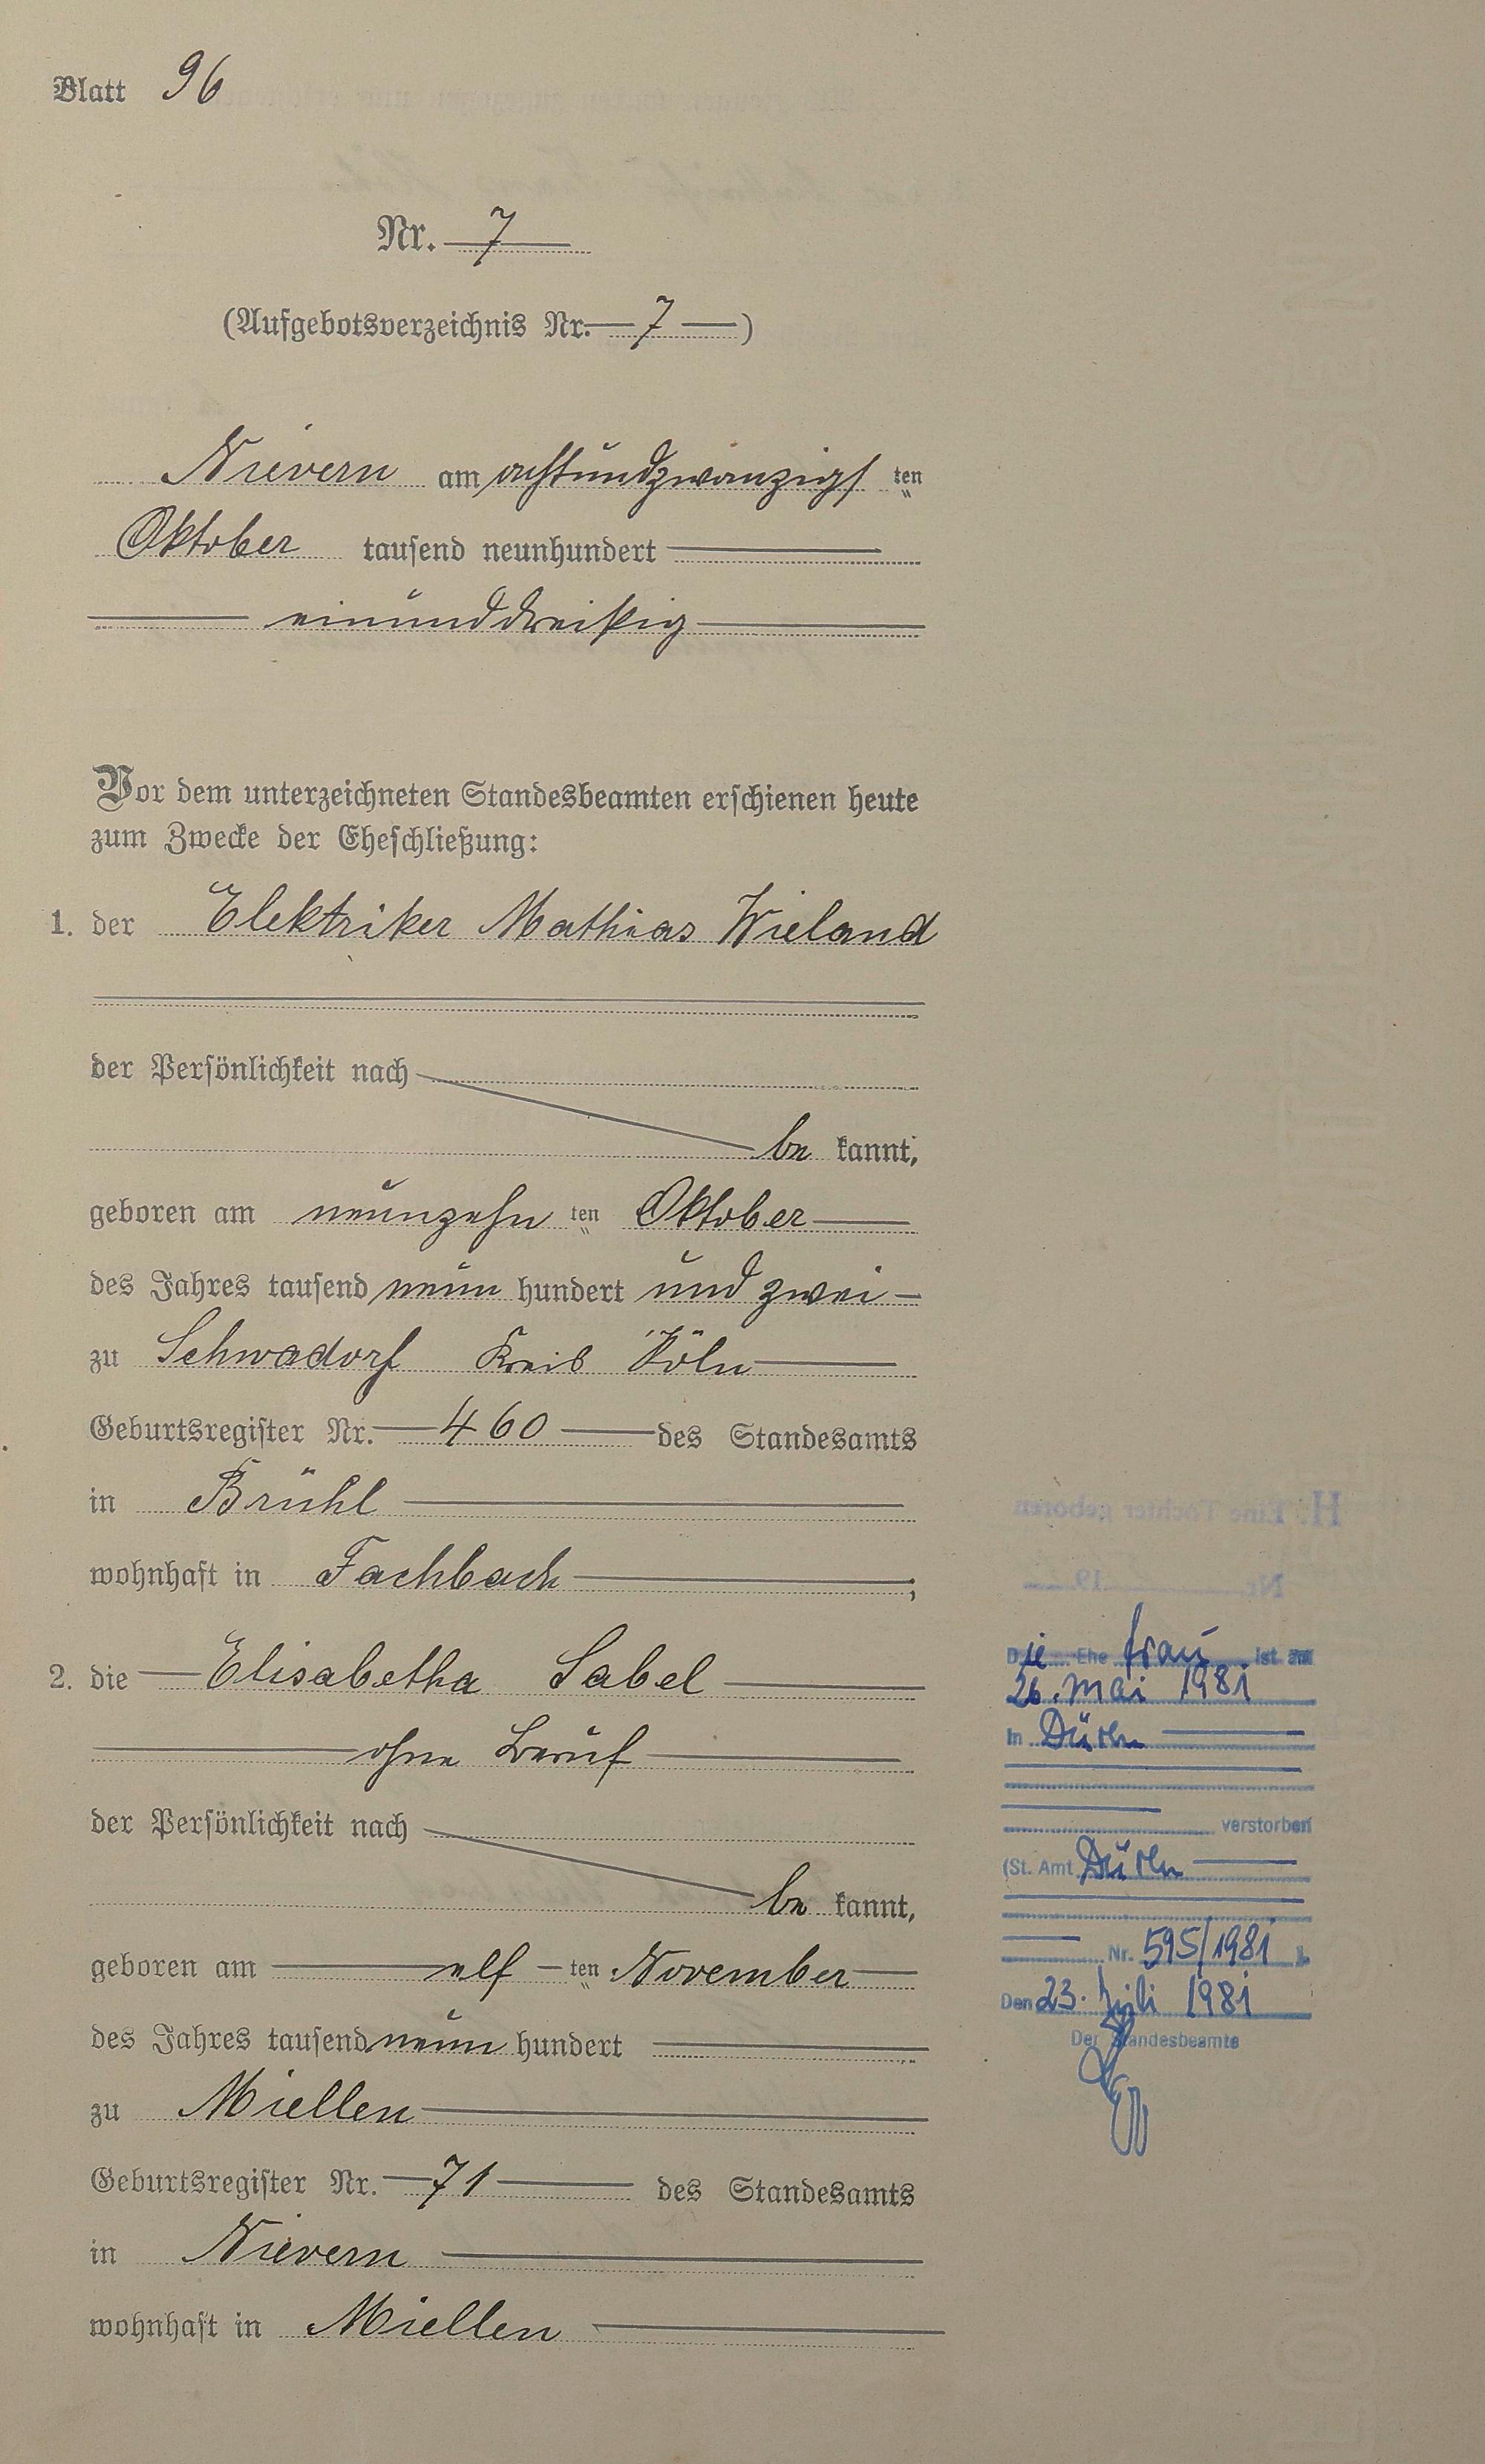 Blatt 96
Nr. 7
(Aufgebotsverzeichnis Nr. 7)
Nievern am achtundzwanzigsten
Oktober tausend neunhundert
einunddreißig
Vor dem unterzeichneten Standesbeamten erschienen heute
zum Zwecke der Eheschließung:
1. der Elektriker Mathias Wieland
der Persönlichkeit nach
be kannt,
geboren am neunzehn ten Oktober
des Jahres tausend neun hundert und zwei
zu Schwadorf Kreis Köln
Geburtsregister Nr. 460 des Standesamts
in Brühl
wohnhaft in Fachbach;
2. die Elisabetha Sabel
ohne Beruf
der Persönlichkeit nach
be kannt,
geboren am elf ten November
des Jahres tausend neun hundert
zu Miellen
Geburtsregister Nr. 71 des Standesamts
in Nievern
wohnhaft in Miellen
H. Eine Tochter geboren
Nr. 19
Die Ehe frau ist am
26. Mai 1981
in Düren
verstorben
(St. Amt Düren
Nr. 595/1981
Den 23. Juli 1981
Der Standesbeamte